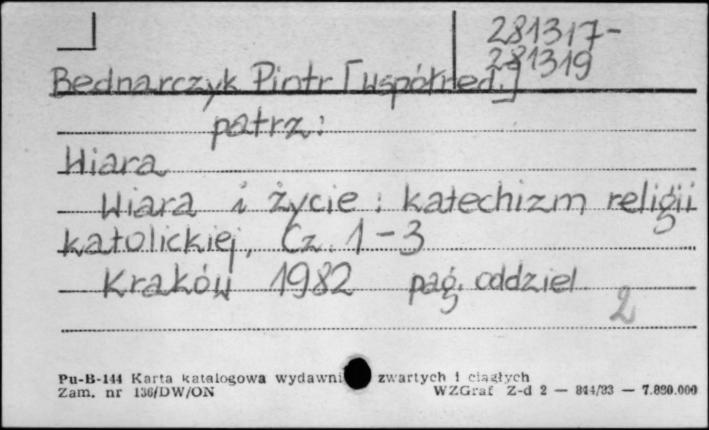 281317-
281319
Bednarczyk Piotr [współred.]
patrz:
Wiara
Wiara i życie : katechizm religii
katolickiej, Cz. 1-3
Kraków 1982 pag. oddziel.
2
Pu-B-144 Karta katalogowa wydawni zwartych i ciągłych
Zam. nr 136/DW/ON WZGraf Z-d 2 — 844/83 — 7.880.000